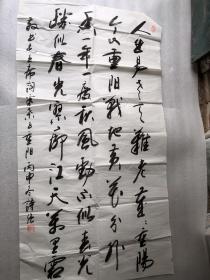 人生易老天難老岁々重陽
今又重阳战地黄花分外
香一年一度秋风劲不似春光
勝似春光寥廓江天万里霜
毛主席词采桑子重阳丙申冬